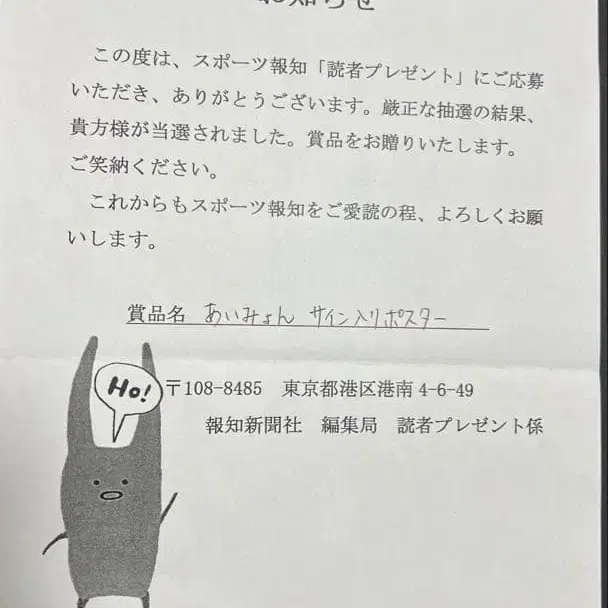 お知らせ
この度は、スポーツ報知「読者プレゼント」にご応募
いただき、ありがとうございます。厳正な抽選の結果、
貴方様が当選されました。賞品をお贈りいたします。
ご笑納ください。
これからもスポーツ報知をご愛読の程、よろしくお願
いします。
賞品名 あいみょん サイン入りポスター
Ho!
〒108-8485 東京都港区港南 4-6-49
報知新聞社 編集局 読者プレゼント係